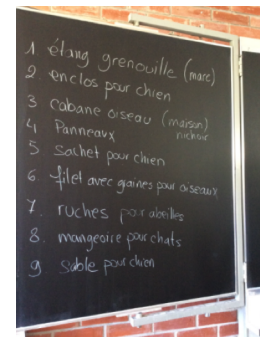 1 étang grenouille (marc)
2 enclos pour chien
3 cabane oiseau (maison)
nichoir
4 Panneaux
5 sachet pour chien
6. filet avec graines pour oiseaux
7. ruches pour abeilles
8. mangeoire pour chats
9. sable pour chien